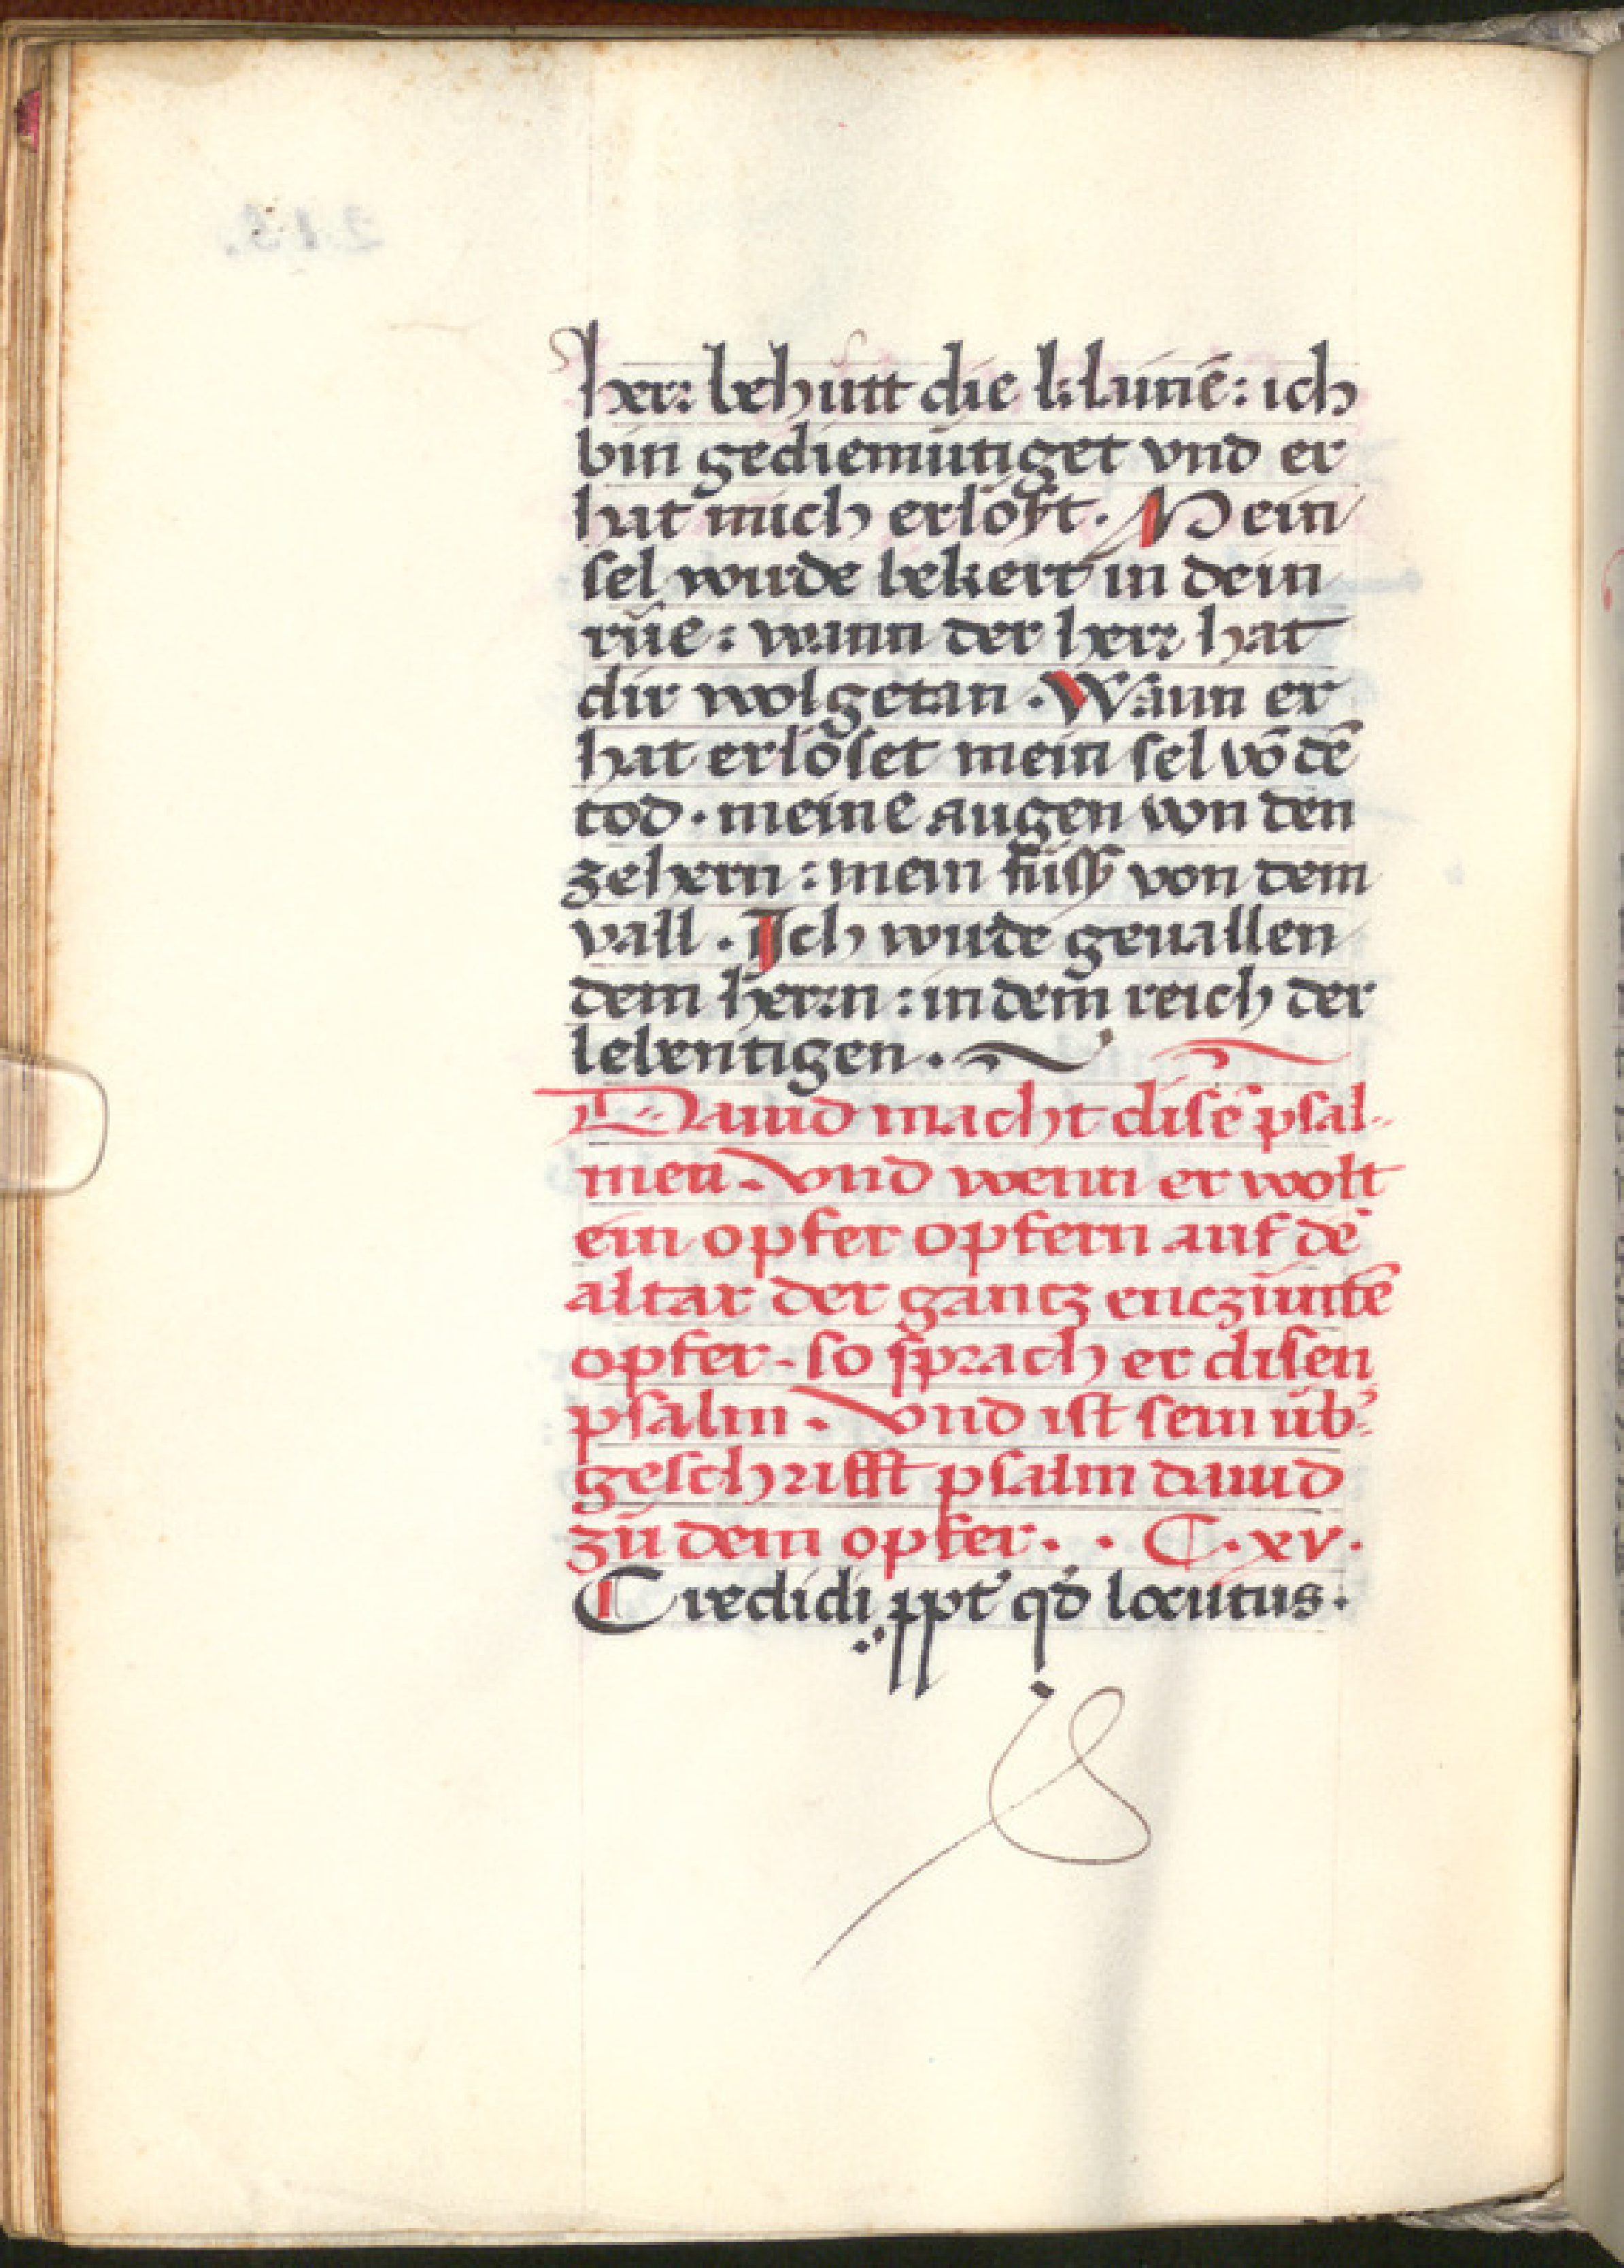 herr behütt die klainē: ich
bin gediemütiget vnd er
hat mich erlöst. Mein
sel wurde bekert in dein
rūe: wann der herr hat
dir wolgetan. Wann er
hat erlöset mein sel vō dē
tod. meine augen von den
zehern: mein füss von dem
vall. Ich wurde geuallen
dem herrn: in dem reich der
lebentigen.
Dauid macht disē psal-
men. Vnd wenn er wolt
ein opfer opfern auf dē
altar der gantz enczüntē
opfer. so sprach er disen
psalm. Vnd ist sein üb̾
geschrifft psalm dauid
zū dem opfer.. C.xv.
Credidi ꝓpt̾ qd̾ locutus.